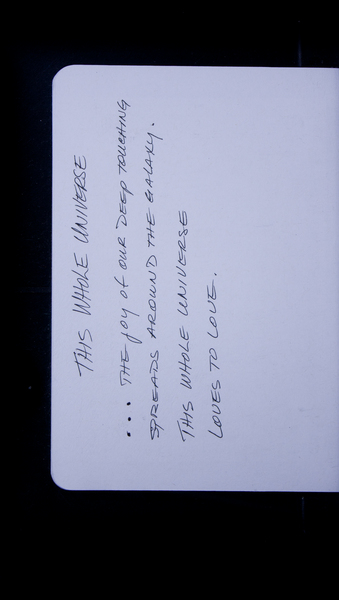 THIS WHOLE UNIVERSE
... THE JOY OF OUR DEEP TOUCHING
SPREADS AROUND THE GALAXY.
THIS WHOLE UNIVERSE
LOVES TO LOVE.